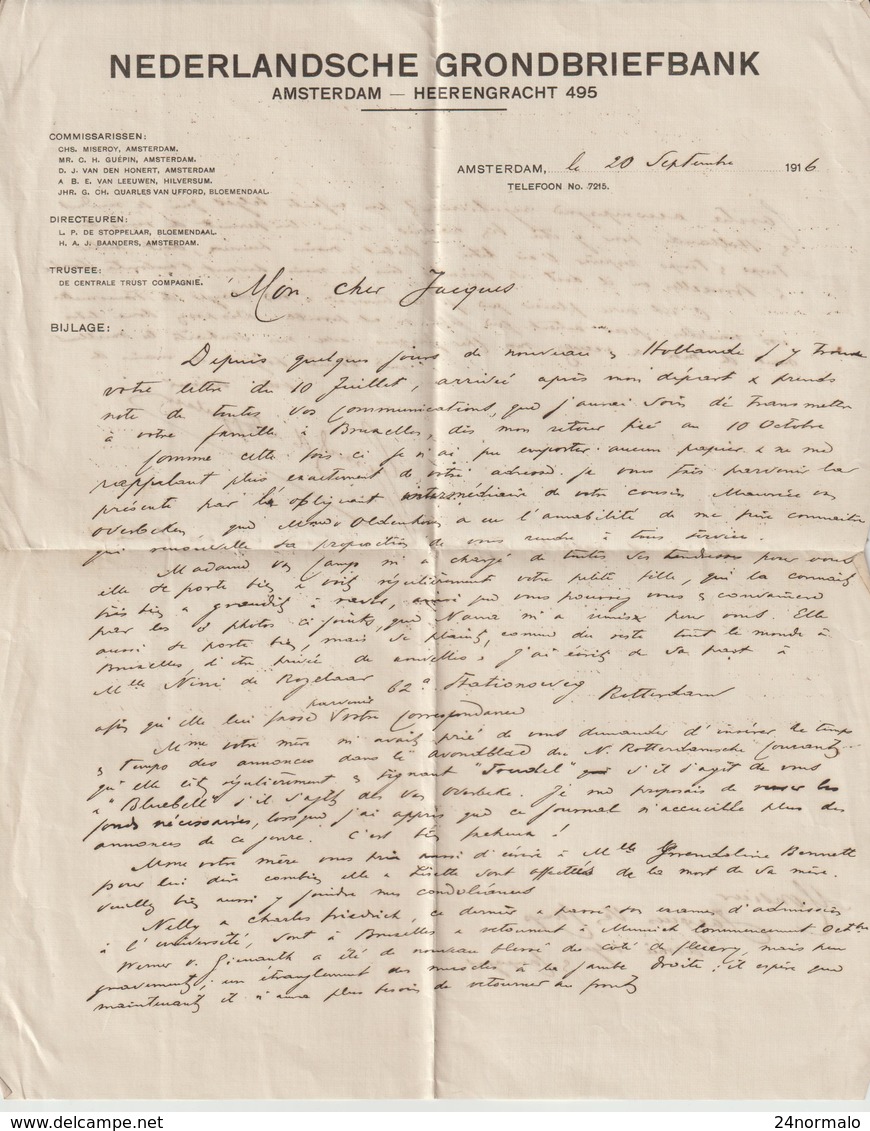 NEDERLANDSCHE GRONDBRIEFBANK
AMSTERDAM — HEERENGRACHT 495
COMMISSARISSEN:
CHS. MISEROY, AMSTERDAM.
MR. C. H. GUÉPIN, AMSTERDAM.
D. J. VAN DEN HONERT, AMSTERDAM
A B. E. VAN LEEUWEN, HILVERSUM.
JHR. G. CH. QUARLES VAN UFFORD, BLOEMENDAAL.
AMSTERDAM, le 20 Septembre 1916
TELEFOON No. 7215.
DIRECTEUREN:
L. P. DE STOPPELAAR, BLOEMENDAAL.
H. A. J. BAANDERS, AMSTERDAM.
TRUSTEE:
DE CENTRALE TRUST COMPAGNIE.
Mon cher Jacques
BIJLAGE:
Depuis quelques jours de nouveau en Hollande j'y trouve
votre lettre du 10 Juillet, arrivée après mon départ & prends
note de toutes vos communications, que j'aurai soin de transmettre
à votre famille à Bruxelles, dès mon retour fixé au 10 Octobre
Comme cette fois ci je n'ai pu emporter aucun papier & ne me
rappelant plus exactement de votre adresse je vous fais parvenir la
présente par l'obligeant intermédiaire de votre cousin Maurice van
Overbeke, que a eu l'amabilité de me faire connaitre
qui renouvelle sa proposition de vous rendre tous service.
Madame Vos m'a chargé de toutes ses tendresses pour vous
elle se porte bien & voit régulièrement votre petite fille, qui la connait
très bien & grandit à ravir, ainsi que vous pourrez vous en convaincre
par les 3 photos ci joints, que Nana m'a remises pour vous. Elle
aussi se porte bien, mais se plaint, comme du reste tout le monde à
Bruxelles, d'être privée de nouvelles, j'ai écrit de sa part à
Mlle Nini de Rozelaar 62a Stationsweg Rotterdam
afin qu'elle lui fasse parvenir votre correspondance
Mme votre mère m'avait prié de vous demander d'insérer de temps
en temps des annonces dans le avondblad du N. Rotterdamsche Courant
qu'elle lit régulièrement en signant "Toudel" s'il s'agit de vous
& "Bluebell" s'il s'agit des Van Overbeke. Je me proposais de verser les
fonds nécessaires, lorsque j'ai appris que ce journal n'accueille plus des
annonces de ce genre. C'est très facheux!
Mme votre mère vous prie aussi d'écrire à Mlle Gwendoline Bennett
pour lui dire combien elle & Liselle sont affectées de la mort de sa mère.
Veuillez bien aussi y joindre mes condoléances
Nelly & Charles Friedrich, ce dernier a passé son examen d'admission
à l'université, sont à Bruxelles & retournent à Munich commencement Octobre
Werner v. a été de nouveau blessé du côté de Fleury, mais peu
gravement, un étranglement des muscles à la jambe droite; il espère que
maintenant il n'aura plus besoin de retourner au front